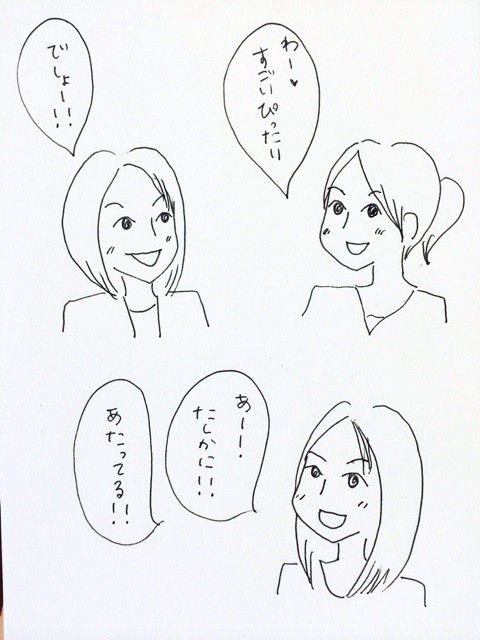 わー♥
すごいぴったり
でしょー!!
あー!
たしかに!!
あたってる!!